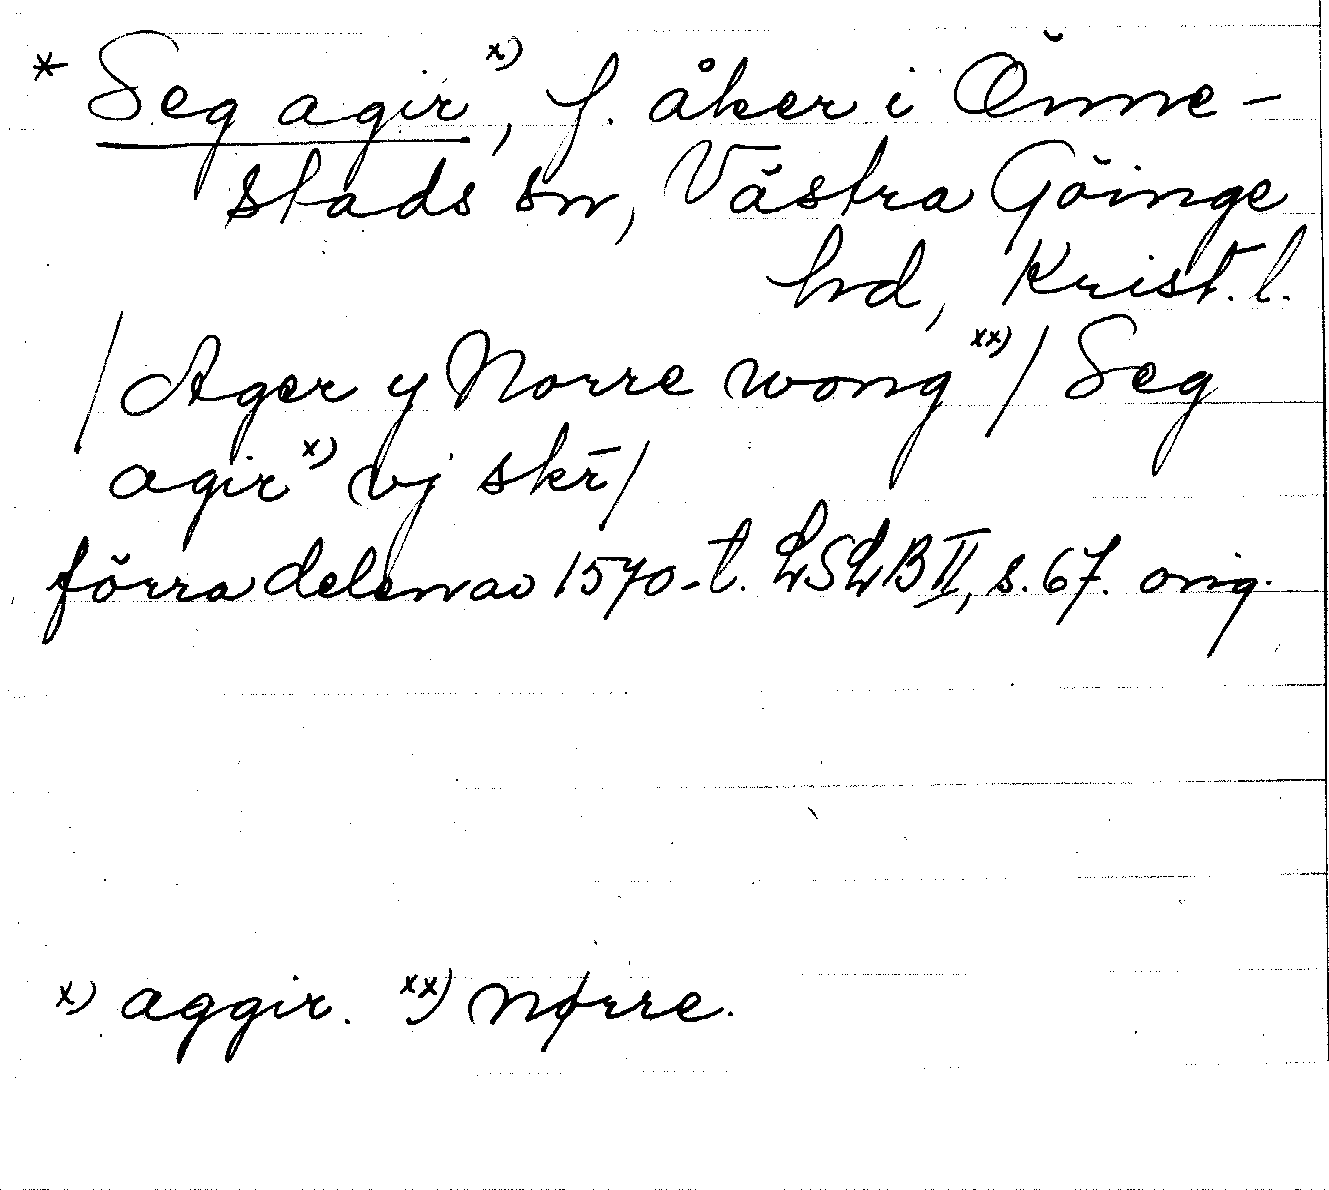 * Seg agir x), f. åker i Önne-
stads sn, Västra Göinge
hd, Krist. l.
/Ager y Norre wong xx)/ Seg
agir x) vj skr̄/
förra delen av 1570-t. LSLB II, s. 67. orig.
x) aggir. xx) Nørre.